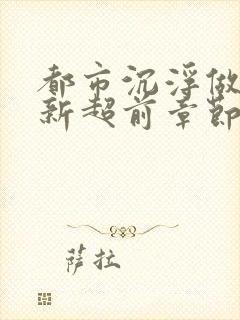 都市沉浮做
新超前章节
萨拉